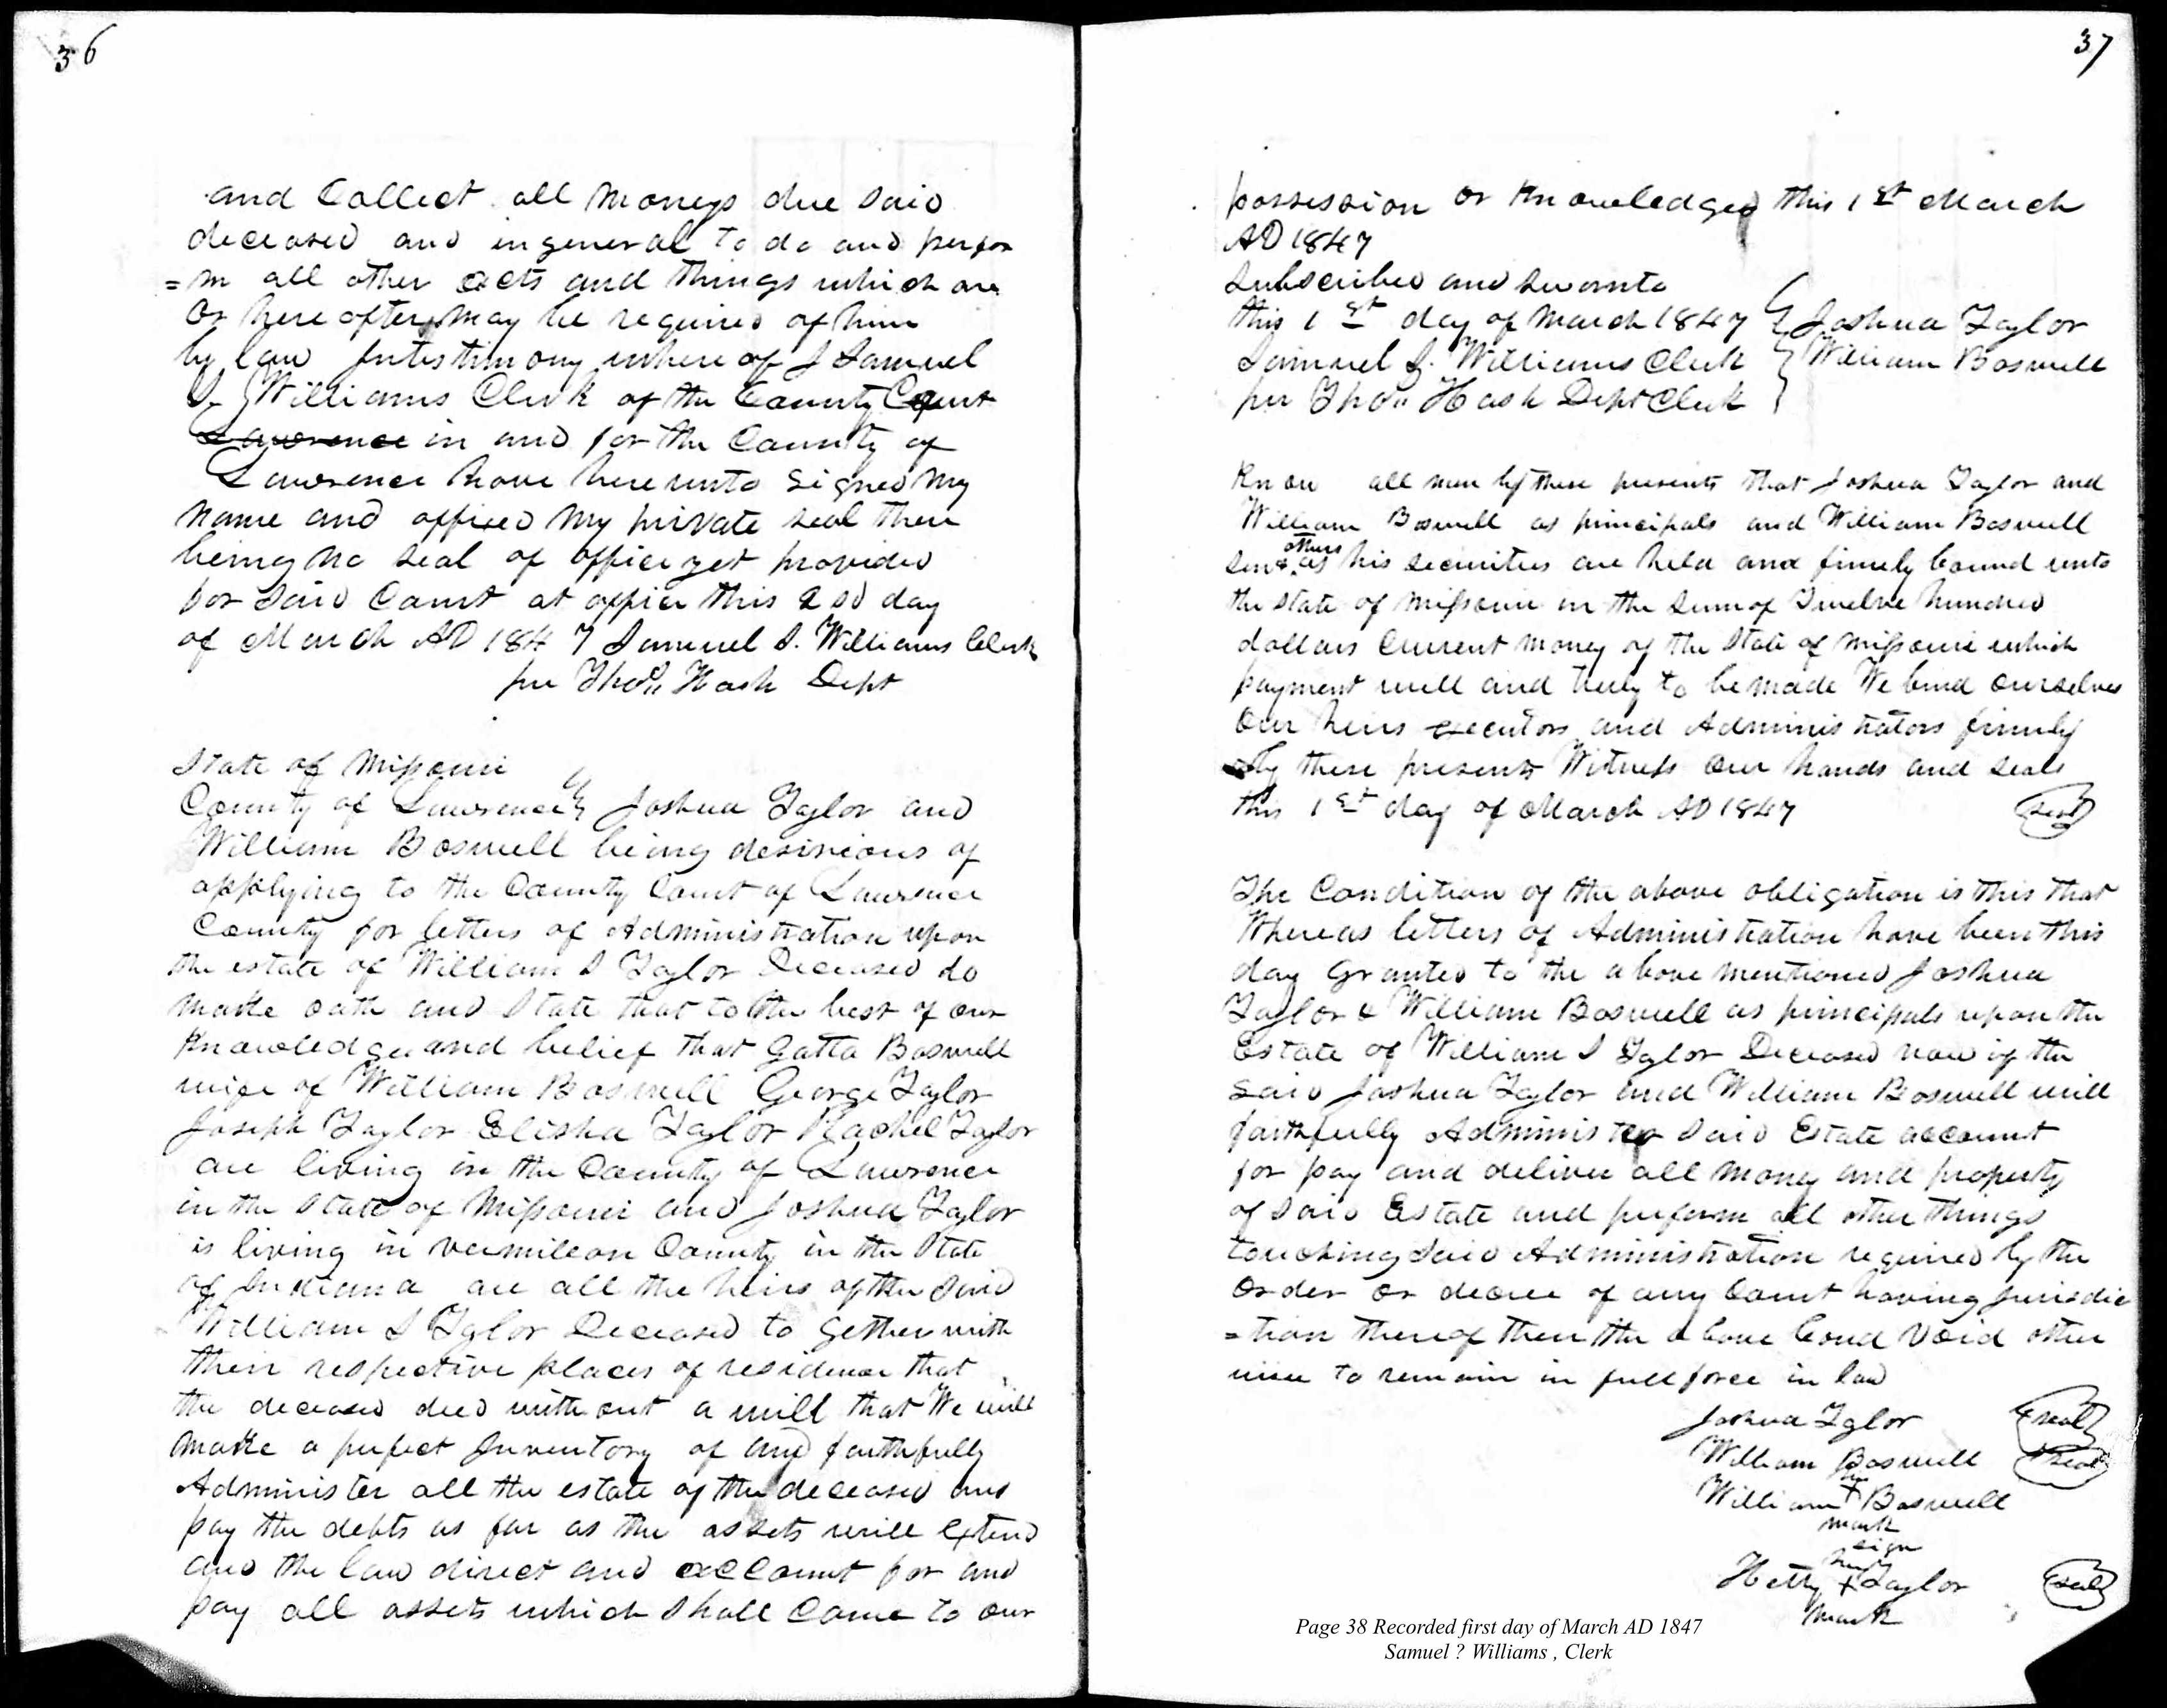 36
and Collect all moneys due Said
deceased and in general to do and perfor
=m all other acts and things which are
or here after may be required of him
by law In testimony where of I Samuel
S. Williams Clerk of the County Court
Lawrence in and for the County of
Lawrence have here unto signed my
name and affixed my private seal there
being no seal of office yet provided
for Said Court at office this 2nd day
of March AD 1847 Samuel S. Williams Clerk
per Thos Hash Dept
State of Missouri
County of Lawrence Joshua Taylor and
William Boswell being desirious of
applying to the County Court of Lawrence
County for letters of Administration upon
the estate of William S Taylor Deceased do
make oath and State that to the best of our
Knowledge and belief that Gatta Boswell
wife of William Boswell George Taylor
Joseph Taylor Elisha Taylor Rachel Taylor
are living in the County of Lawrence
in the State of Missouri and Joshua Taylor
is living in vermileon County in the State
of Indiana are all the heirs of the Said
William S Tylor Deceased to gether with
their respective places of residence that
the deceased died with out a will that We will
make a perfect Inventory of and faithfully
Administer all the estate of the deceased and
pay the debts as far as the assets will Extend
and the law direct and account for and
pay all assets which Shall Come to our
37
possession or Knowledged this 1st March
AD 1847
Subscribed and Sworn to
this 1st day of March 1847 Joshua Taylor
Samuel S. Williams Clerk William Boswell
per Thos Hash Dept Clerk
Know all men by these presents that Joshua Taylor and
William Boswell as principals and William Boswell
others
Sen & as his Securities are held and firmly bound unto
the State of Missouri in the Sum of Twelve hundred
dollars Current money of the State of Missouri which
payment well and truly to be made We bind ourselves
Our heirs executors and Administrators firmly
by these presents Witness our hands and seals
this 1st day of March AD 1847 seal
The Condition of the above obligation is this that
Whereas letters of Administration have been this
day Granted to the above mentioned Joshua
Taylor & William Boswell as principals upon the
Estate of William S Tylor Deceased now if the
Said Joshua Taylor and William Boswell will
faithfully Administer Said Estate account
for pay and deliver all money and property
of Said Estate and perform all other things
touching Said Administration required by the
Order or decree of any Court having Jurisdic
=tion thereof then the above bond Void other
wise to remain in full force in law
Joshua Tylor seal
William Boswell seal
his
William + Boswell
mark
sign
her
Hetty + Taylor seal
mark
Page 38 Recorded first day of March AD 1847
Samuel ? Williams , Clerk